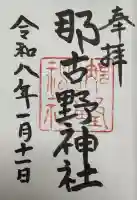 奉拝
那古野神社
令和八年一月十一日